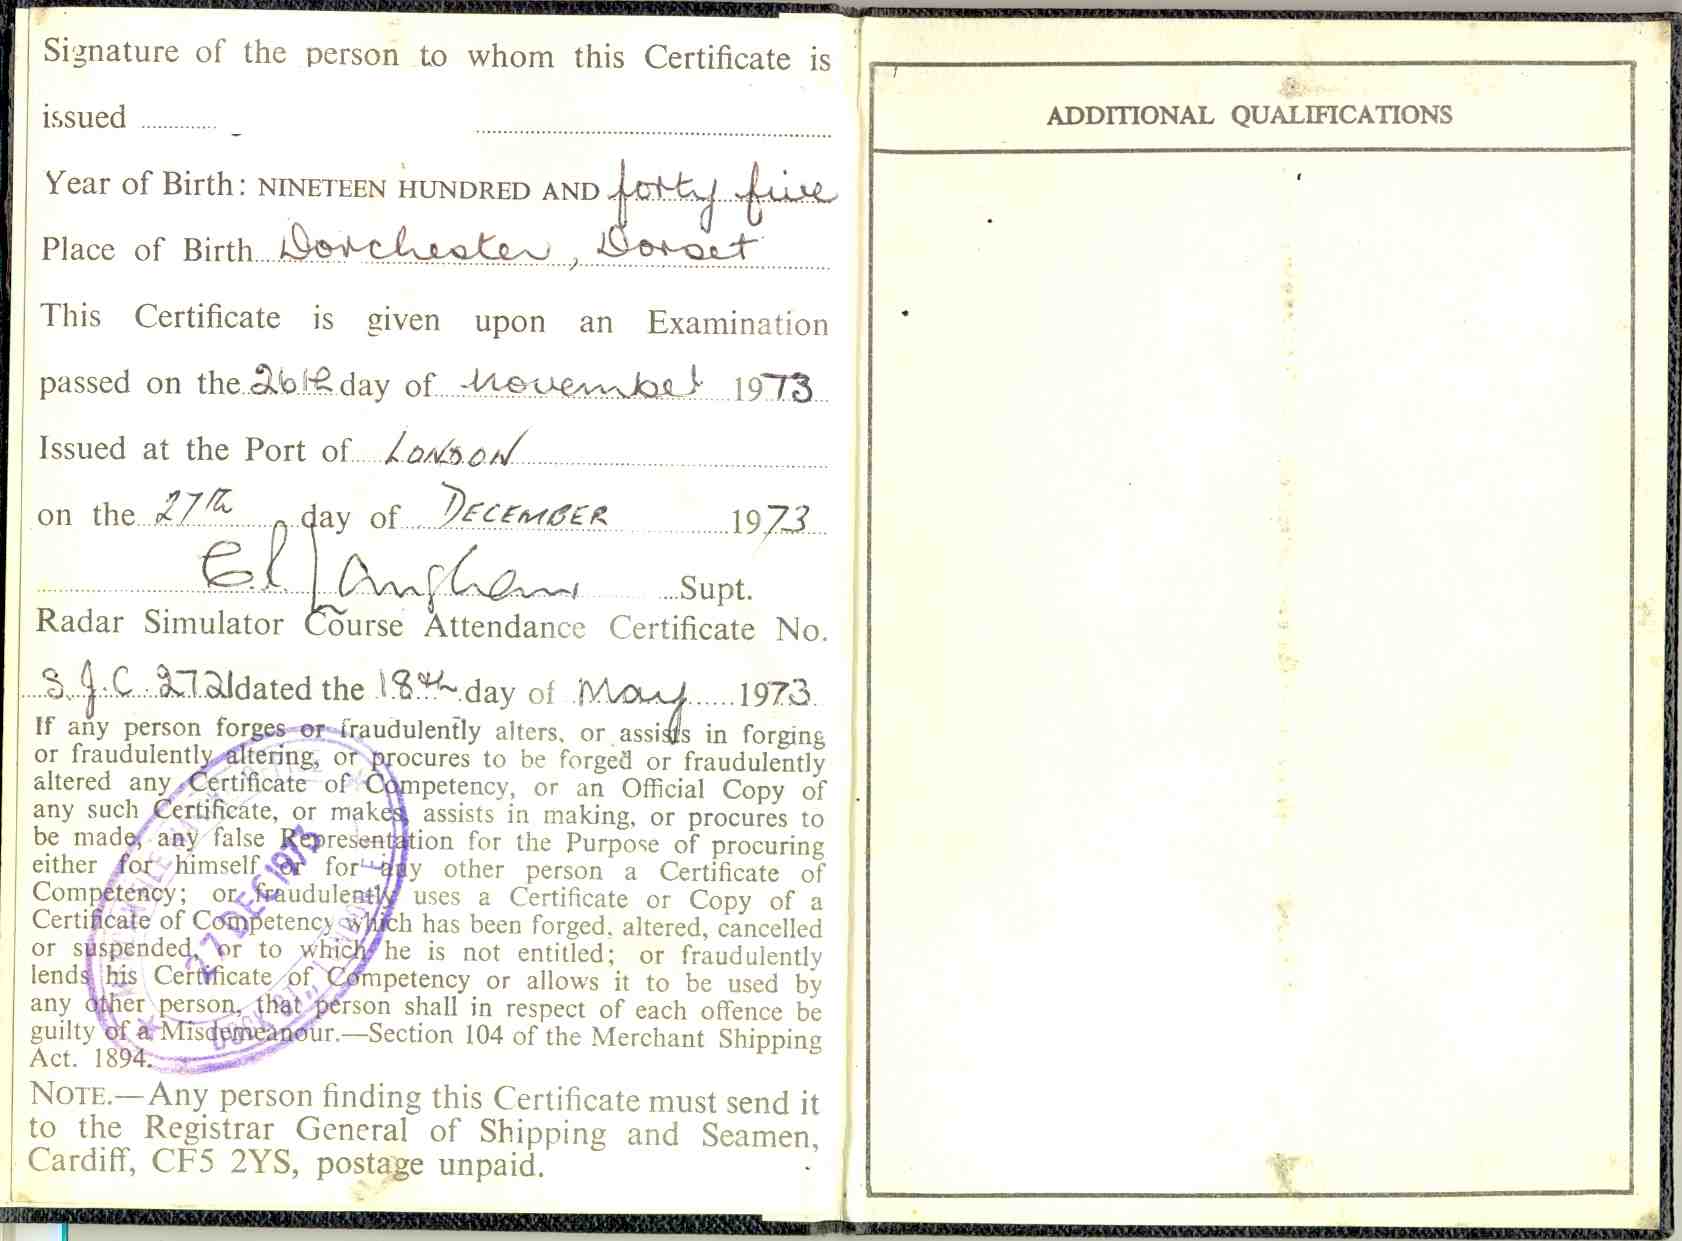 Signature of the person to whom this Certificate is
issued
Year of Birth: NINETEEN HUNDRED AND forty five
Place of Birth Dorchester, Dorset
This Certificate is given upon an Examination
passed on the 26th day of November 1973
Issued at the Port of LONDON
on the 27th day of DECEMBER 1973
Supt.
Radar Simulator Course Attendance Certificate No.
S.J.C. 2721 dated the 18th day of May 1973
If any person forges or fraudulently alters, or assists in forging
or fraudulently altering, or procures to be forged or fraudulently
altered any Certificate of Competency, or an Official Copy of
any such Certificate, or makes, assists in making, or procures to
be made, any false Representation for the Purpose of procuring
either for himself or for any other person a Certificate of
Competency; or fraudulently uses a Certificate or Copy of a
Certificate of Competency which has been forged, altered, cancelled
or suspended, or to which he is not entitled; or fraudulently
lends his Certificate of Competency or allows it to be used by
any other person, that person shall in respect of each offence be
guilty of a Misdemeanour.—Section 104 of the Merchant Shipping
Act. 1894.
27 DEC 1973
NOTE.—Any person finding this Certificate must send it
to the Registrar General of Shipping and Seamen,
Cardiff, CF5 2YS, postage unpaid.
ADDITIONAL QUALIFICATIONS